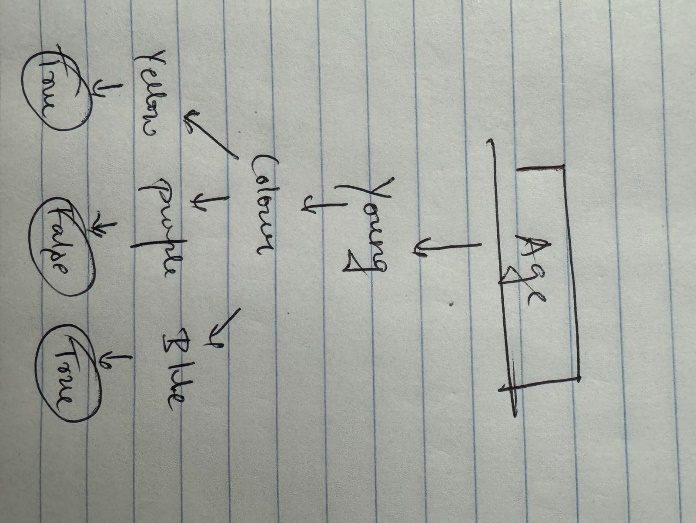 Age
Young
Colour
Yellow Purple Blue
True False True